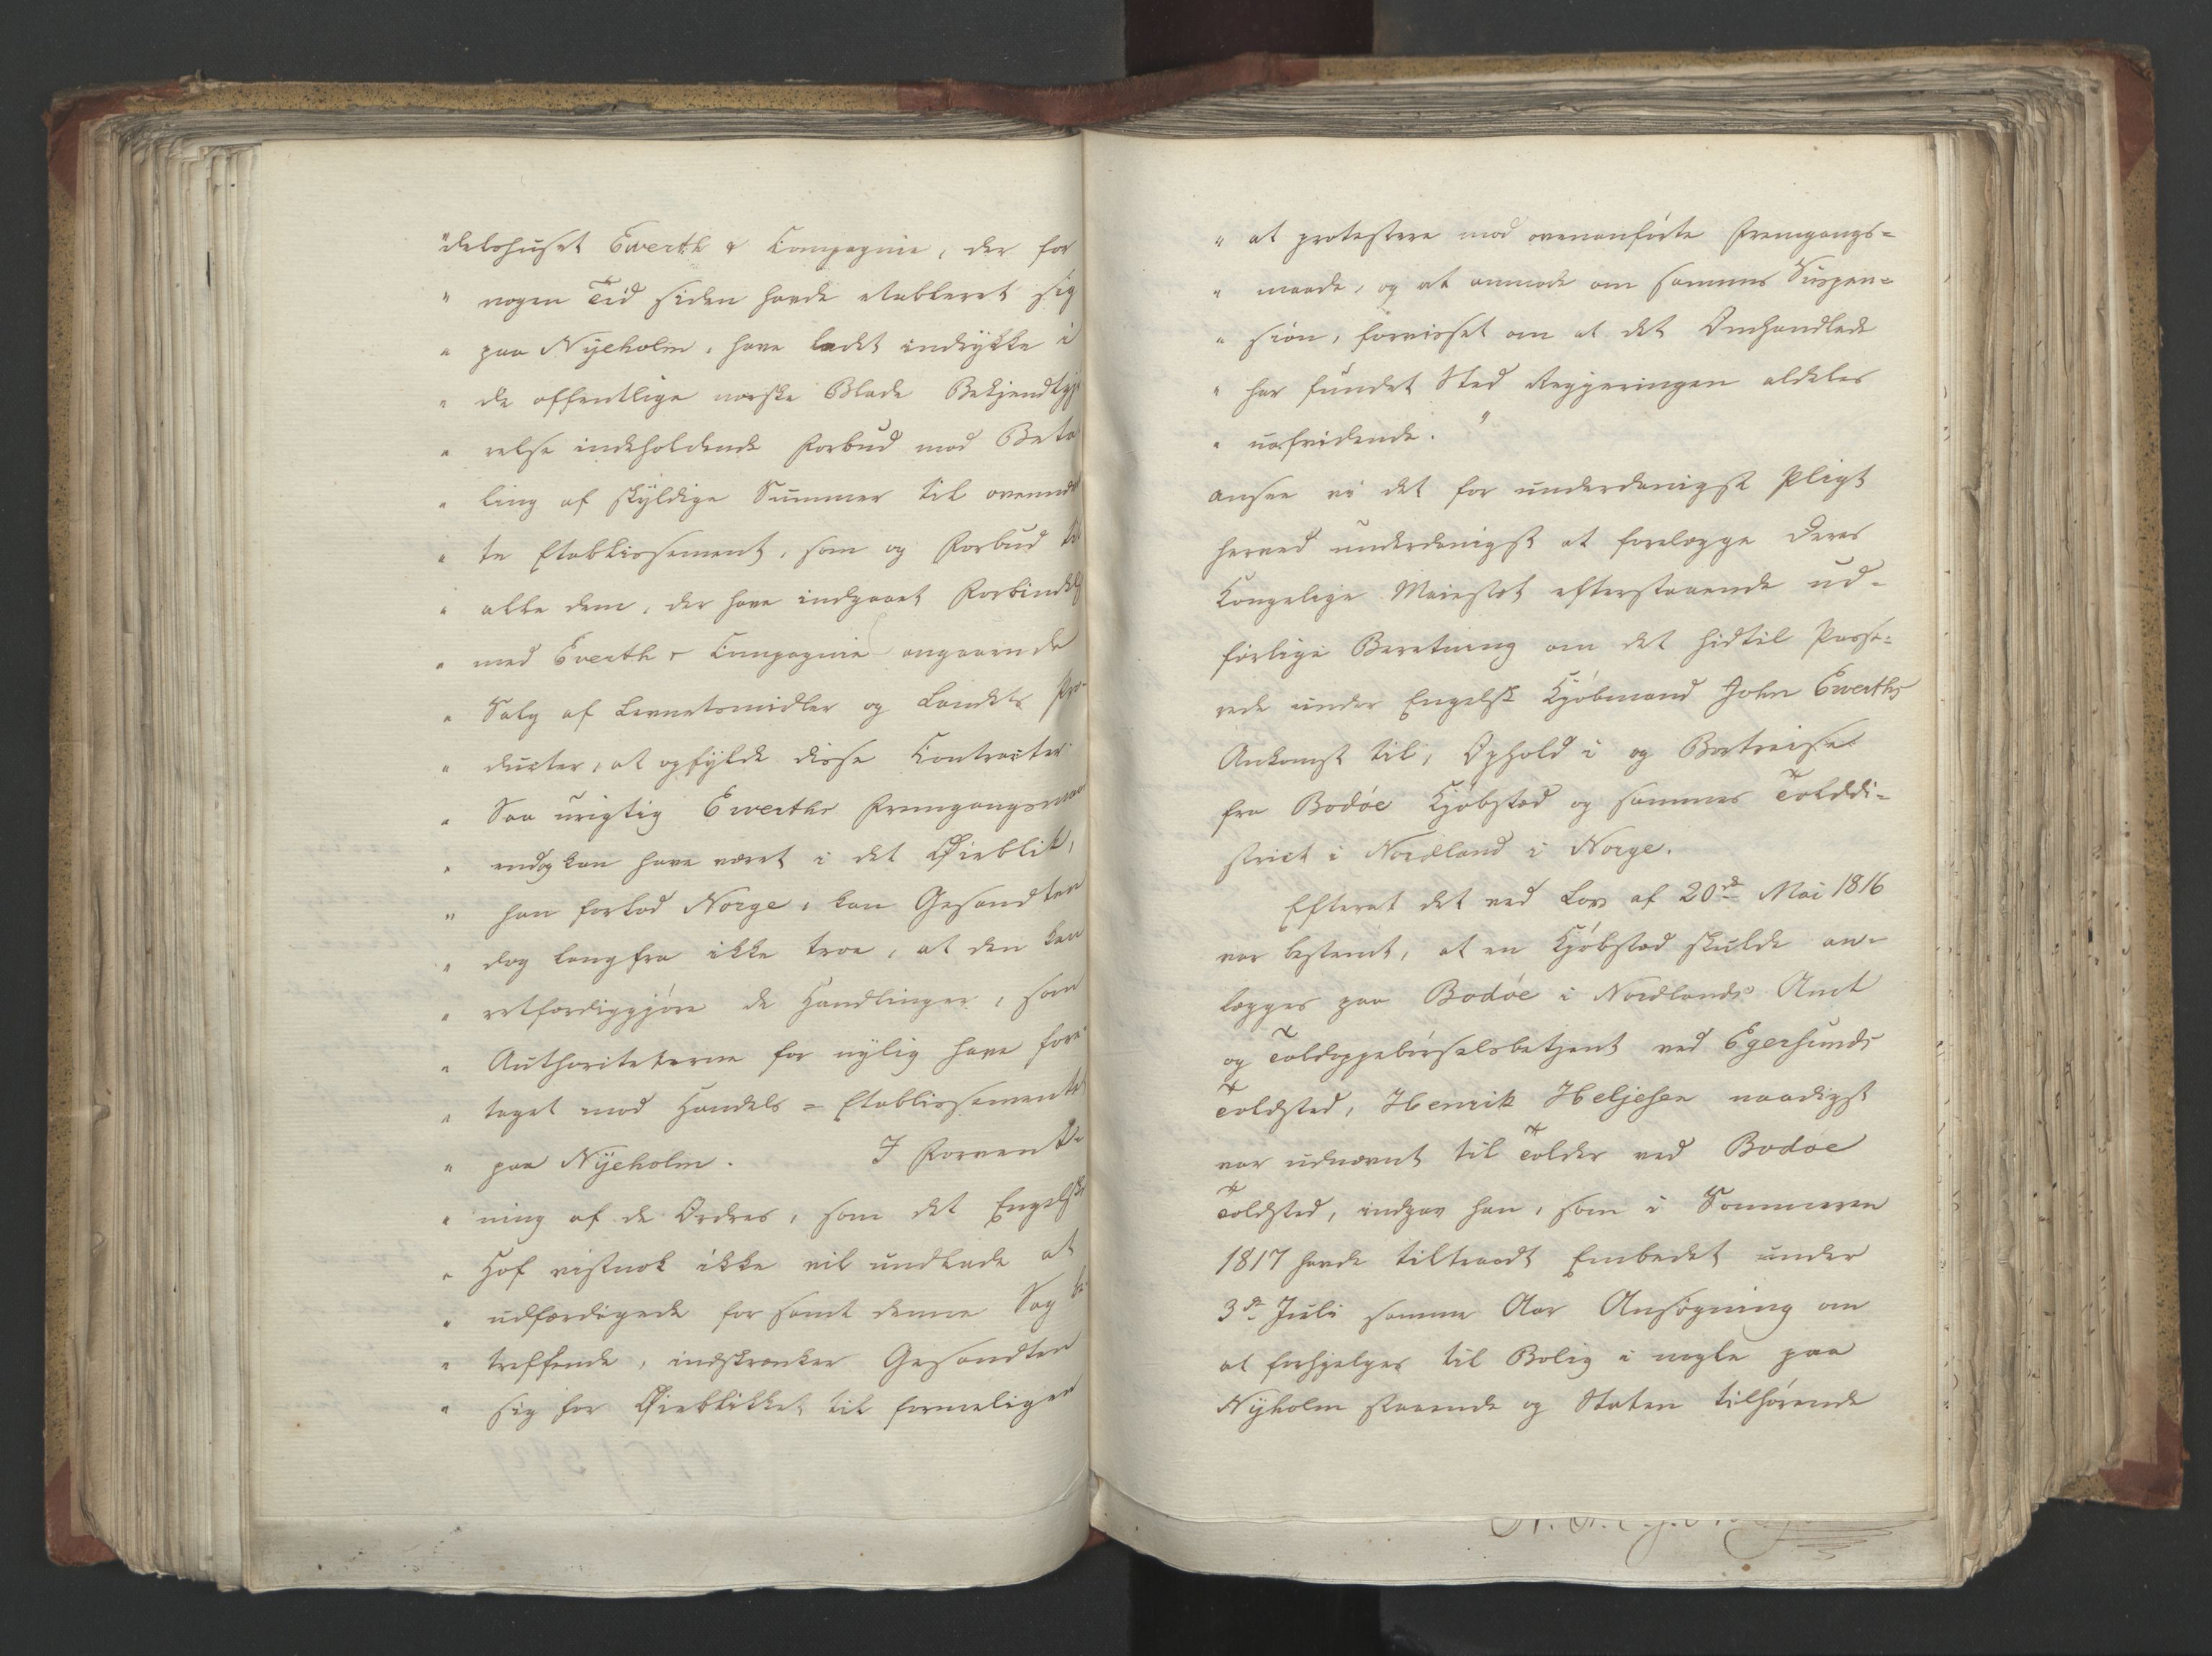 "delshuset Ewerth & Compagnie, der for
" nogen Tid siden havde etableret sig
" paa Nyeholm, have ladet indrykke i
" de offentlige norske Blade Bekjendtgjø
" relse indeholdende Forbud mod Beta
" ling af skyldige Summer til ovenmeld
" te Etablissement, som og Forbud til
" alle dem, der have indgaaet Forbindelse
" med Everth & Compagnie angaaende
" Salg af Levnetsmidler og Landets Pro-
" ducter, at opfylde disse Contracter.
" Saa urigtig Ewerths Fremgangsmaa
" endog kan have været i det Øieblik,
" han forlod Norge, kan Gesandten
" dog langfra ikke troe, at den kan
" retfærdiggjøre de Handlinger, som
" Authoriteterne for nylig have fore
" taget mod Handels=Etablissementet
" paa Nyeholm. I Forvent-
" ning af de Ordres, som det Engelske
" Hof vistnok ikke vil undlade at
" udfærdigede forsamt denne Sag be
" treffende, indskrænker Gesandten
" sig for Øieblikket til formeligen
" at protestere mod ovenanførte Fremgangs=
" maade, og at anmode om sammes Suspen=
" sion, forvisset om at det Omhandlede
" har fundet Sted Regjeringen aldeles
" uafvidende. "
ansee vi det for underdanigst Pligt
herved underdanigst at forelægge Deres
Kongelige Maiestæt efterstaaende ud-
førlige Beretning om det hidtil Passe=
rede under Engelsk Kjøbmand John Ewerths
Ankomst til, Ophold i og Bortreise
fra Bodøe Kjøbstad og sammes Tolddi=
strict i Nordland i Norge.
Efterat det ved Lov af 20de Mai 1816
var bestemt, at en Kjøbstad skulde an-
lægges paa Bodøe i Nordlands Amt
og Toldoppebørselsbetjent ved Egersunds
Toldsted, Henrik Heljesen naadigst
var udnævnt til Tolder ved Bodøe
Toldsted, indgav han, som i Sommeren
1817 havde tiltraadt Embedet under
3de Juli samme Aar Ansøgning om
at forhjelpes til Bolig i nogle paa
Nyholm staaende og Staten tilhørende